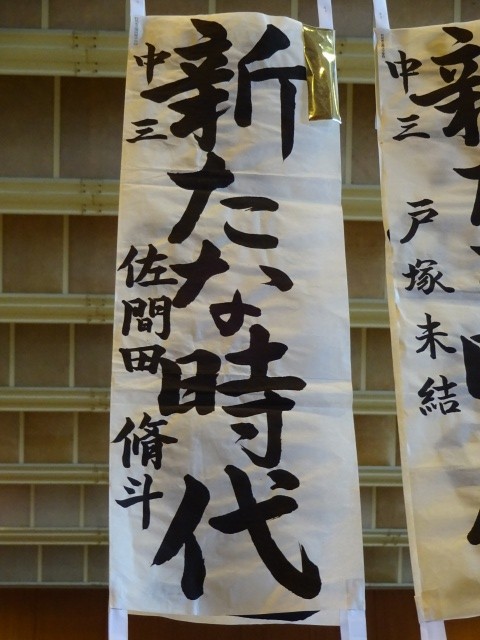 新たな時代
中三 佐間田 脩斗
新
中三 戸塚未結